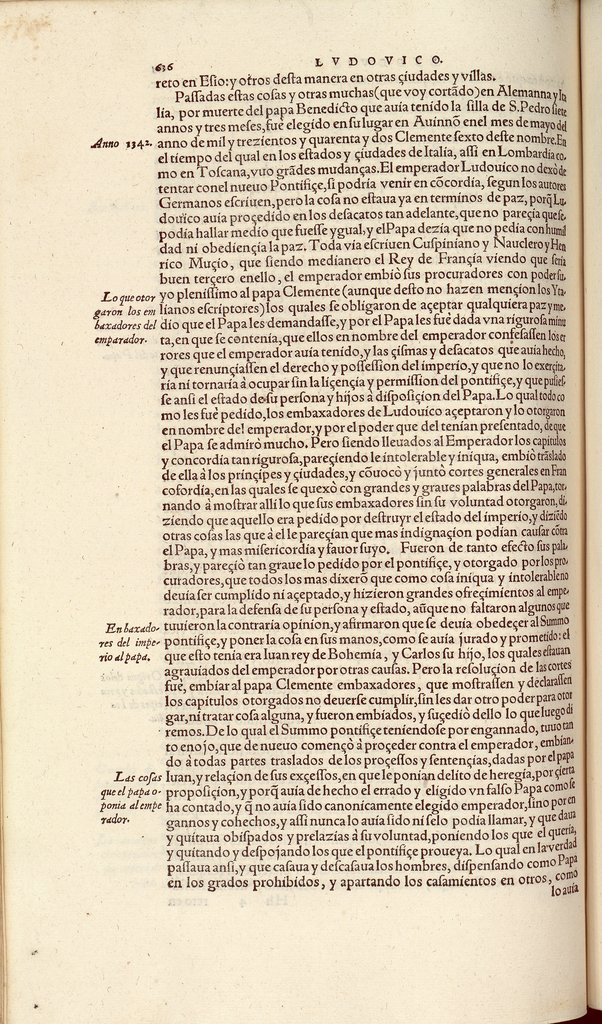 636
LVDOVICO.
reto en Esio:y otros desta manera en otras çiudades y villas.
Passadas estas cosas y otras muchas(que voy cortãdo)en Alemanna y Ita
lia, por muerte del papa Benedicto que auía tenido la silla de S.Pedro siete
annos y tres meses,fué elegido en su lugar en Auinnõ en el mes de mayo del
Anno 1342.
anno de mil y trezientos y quarenta y dos Clemente sexto deste nombre.En
el tiempo del qual en los estados y çiudades de Italia, assi en Lombardia co-
mo en Toscana,vuo grãdes mudanças.El emperador Ludouico no dexò de
tentar con el nueuo Pontifiçe,si podria venir en cõcordia, segun los autores
Germanos escriuen,pero la cosa no estaua ya en terminos de paz, porq̃ Lu-
douico auia proçedido en los desacatos tan adelante,que no pareçia que se
podia hallar medio que fuesse ygual,y el Papa dezia que no pedia con humil
dad ni obediençia la paz. Toda via escriuen Cuspiniano y Nauclero y Hen
rico Muçio, que siendo medianero el Rey de Françia viendo que seria
buen terçero en ello, el emperador embiò sus procuradores con poder su-
Lo que otor
garon los em
baxadores del
emparador.
yo plenissimo al papa Clemente (aunque desto no hazen mençion los Yta-
lianos escriptores)los quales se obligaron de açeptar qualquiera paz y me-
dio que el Papa les demandasse,y por el Papa les fue dada vna rigurosa minu
ta,en que se contenia,que ellos en nombre del emperador confesassen los er
rores que el emperador auia tenido,y las çismas y desacatos que auia hecho,
y que renunçiassen el derecho y possession del imperio,y que no lo exerçita-
ria ni tornaria à ocupar sin la liçençia y permission del pontifiçe,y que pusies-
se ansi el estado de su persona y hijos à disposiçion del Papa.Lo qual todo co
mo les fue pedido,los embaxadores de Ludouico açeptaron y lo otorgaron
en nombre del emperador,y por el poder que del tenian presentado, de que
el Papa se admirò mucho. Pero siendo lleuados al Emperador los capitulos
y concordia tan rigurosa,pareçiendo le intolerable y iniqua, embiò trãslado
de ella à los prinçipes y çiudades,y cõuocò y juntò cortes generales en Fran
cofordia,en las quales se quexò con grandes y graues palabras del Papa,tor-
nando à mostrar alli lo que sus embaxadores sin su voluntad otorgaron, di-
ziendo que aquello era pedido por destruyr el estado del imperio,y diziẽdo
otras cosas las que à el le pareçian que mas indignaçion podian causar cõtra
el Papa, y mas misericordia y fauor suyo. Fueron de tanto efecto sus pala-
bras,y pareçiò tan graue lo pedido por el pontifiçe,y otorgado por los pro-
curadores,que todos los mas dixerõ que como cosa iniqua y intolerable no
deuia ser cumplido ni açeptado,y hizieron grandes ofreçimientos al empe-
rador,para la defensa de su persona y estado, aũque no faltaron algunos que
En baxado-
res del impe-
rio al papa.
tuuieron la contraria opinion,y afirmaron que se deuia obedeçer al Summo
pontifiçe,y poner la cosa en sus manos,como se auia jurado y prometido: el
que esto tenia era Iuan rey de Bohemia, y Carlos su hijo, los quales estauan
agrauiados del emperador por otras causas. Pero la resoluçion de las cortes
fue, embiar al papa Clemente embaxadores, que mostrassen y declarassen
los capitulos otorgados no deuerse cumplir,sin les dar otro poder para otor
gar,ni tratar cosa alguna, y fueron embiados, y suçediò dello lo que luego di
remos.De lo qual el Summo pontifiçe teniendose por engannado, tuuo tan
to enojo, que de nueuo començò à proçeder contra el emperador, embian-
do à todas partes traslados de los proçessos y sentençias,dadas por el papa
Las cosas
que el papa o-
ponia al empe
rador.
Iuan,y relaçion de sus exçessos,en que le ponian delito de heregia,por çierta
proposiçion,y porq̃ auia de hecho el errado y eligido vn falso Papa como se
ha contado,y q̃ no auia sido canonicamente elegido emperador,sino por en
gannos y cohechos,y assi nunca lo auia sido ni se lo podia llamar, y que daua
y quitaua obispados y prelazias à su voluntad,poniendo los que el queria,
y quitando y despojando los que el pontifiçe proueya. Lo qual en la verdad
passaua ansi,y que casaua y descasaua los hombres, dispensando como Papa
en los grados prohibidos, y apartando los casamientos en otros, como
lo auia